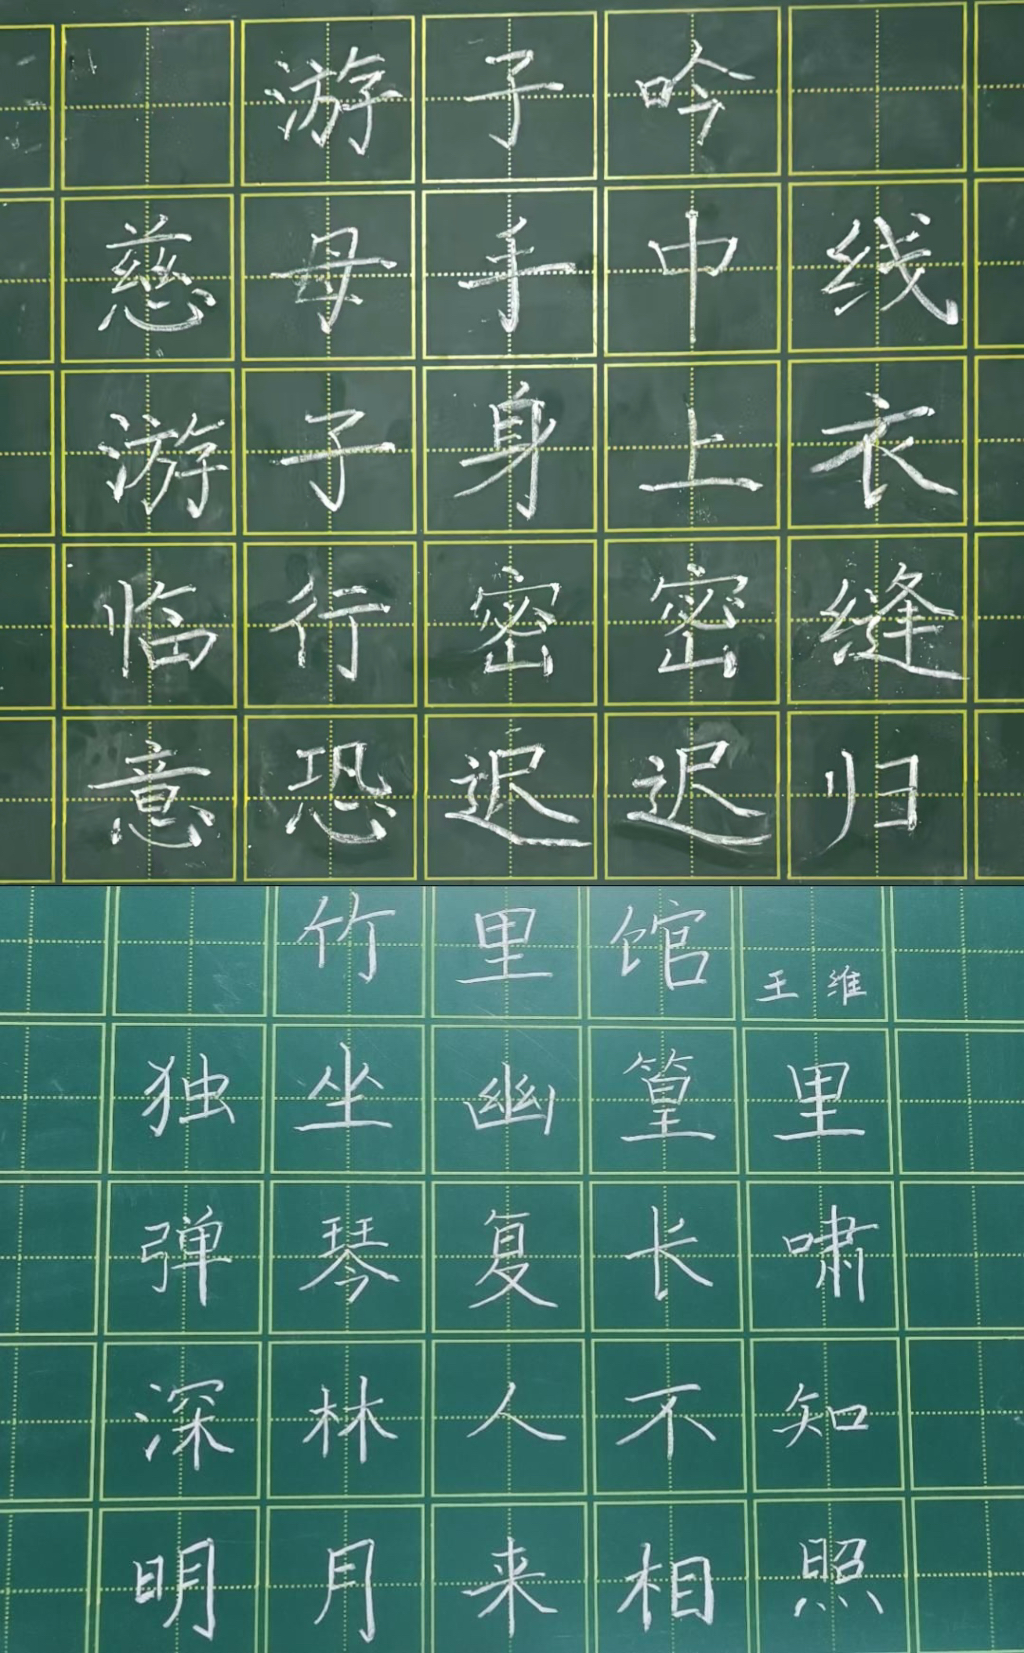 游子吟
慈母手中线
游子身上衣
临行密密缝
意恐迟迟归
竹里馆 王维
独坐幽篁里
弹琴复长啸
深林人不知
明月来相照